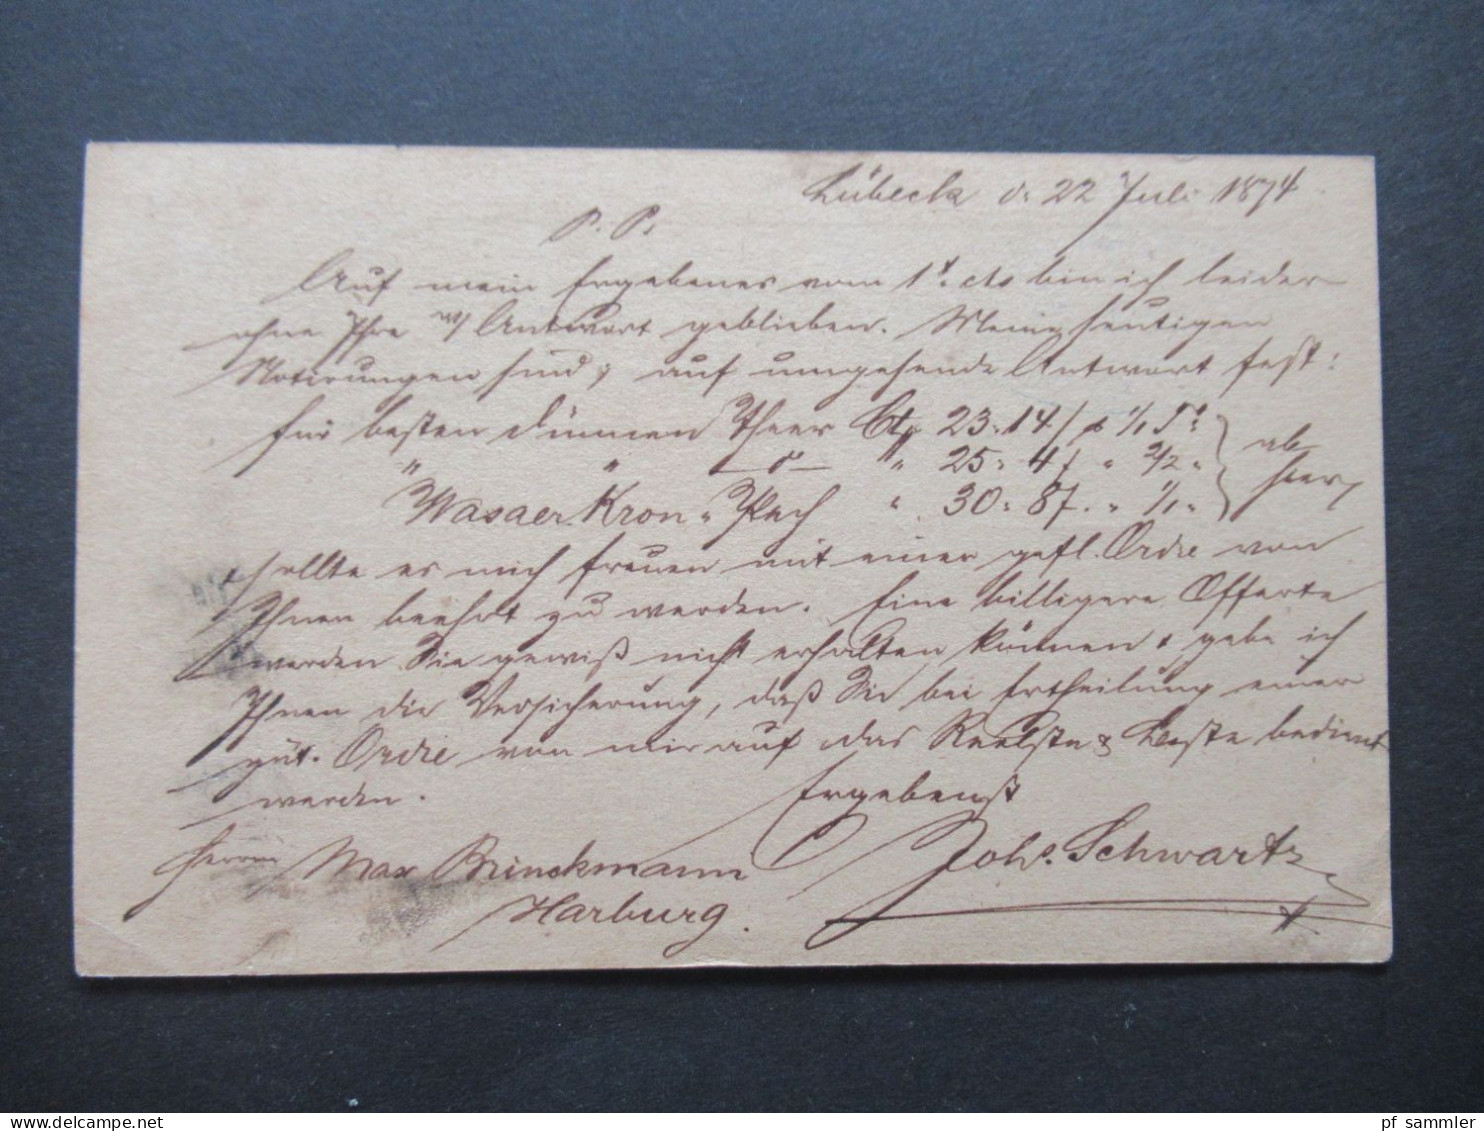 Lübeck d. 22 Juli 1874
P. P.
Auf mein Ergebenes vom 1t. cts bin ich leider
ohne Ihre w/ Antwort geblieben. Meine heutigen
Notirungen sind, auf umgehende Antwort fest:
für besten dünnen Theer 23. 14 / p 1/1 To
" " do " 25. 4 / " 2/2 "
ab hier
" Wasaer Kron " Pech " 30. 87. " 1/1 "
sollte es mich freuen mit einer gefl. Ordre von
Ihnen beehrt zu werden. Eine billigere Offerte
werden Sie gewiß nicht erhalten können & gebe ich
Ihnen die Versicherung, daß Sie bei Ertheilung einer
güt. Ordre von mir auf das Reelste & Beste bedient
werden.
Ergebenst
Johs. Schwartz
Herrn Max Brinckmann
Harburg.
pf sammler